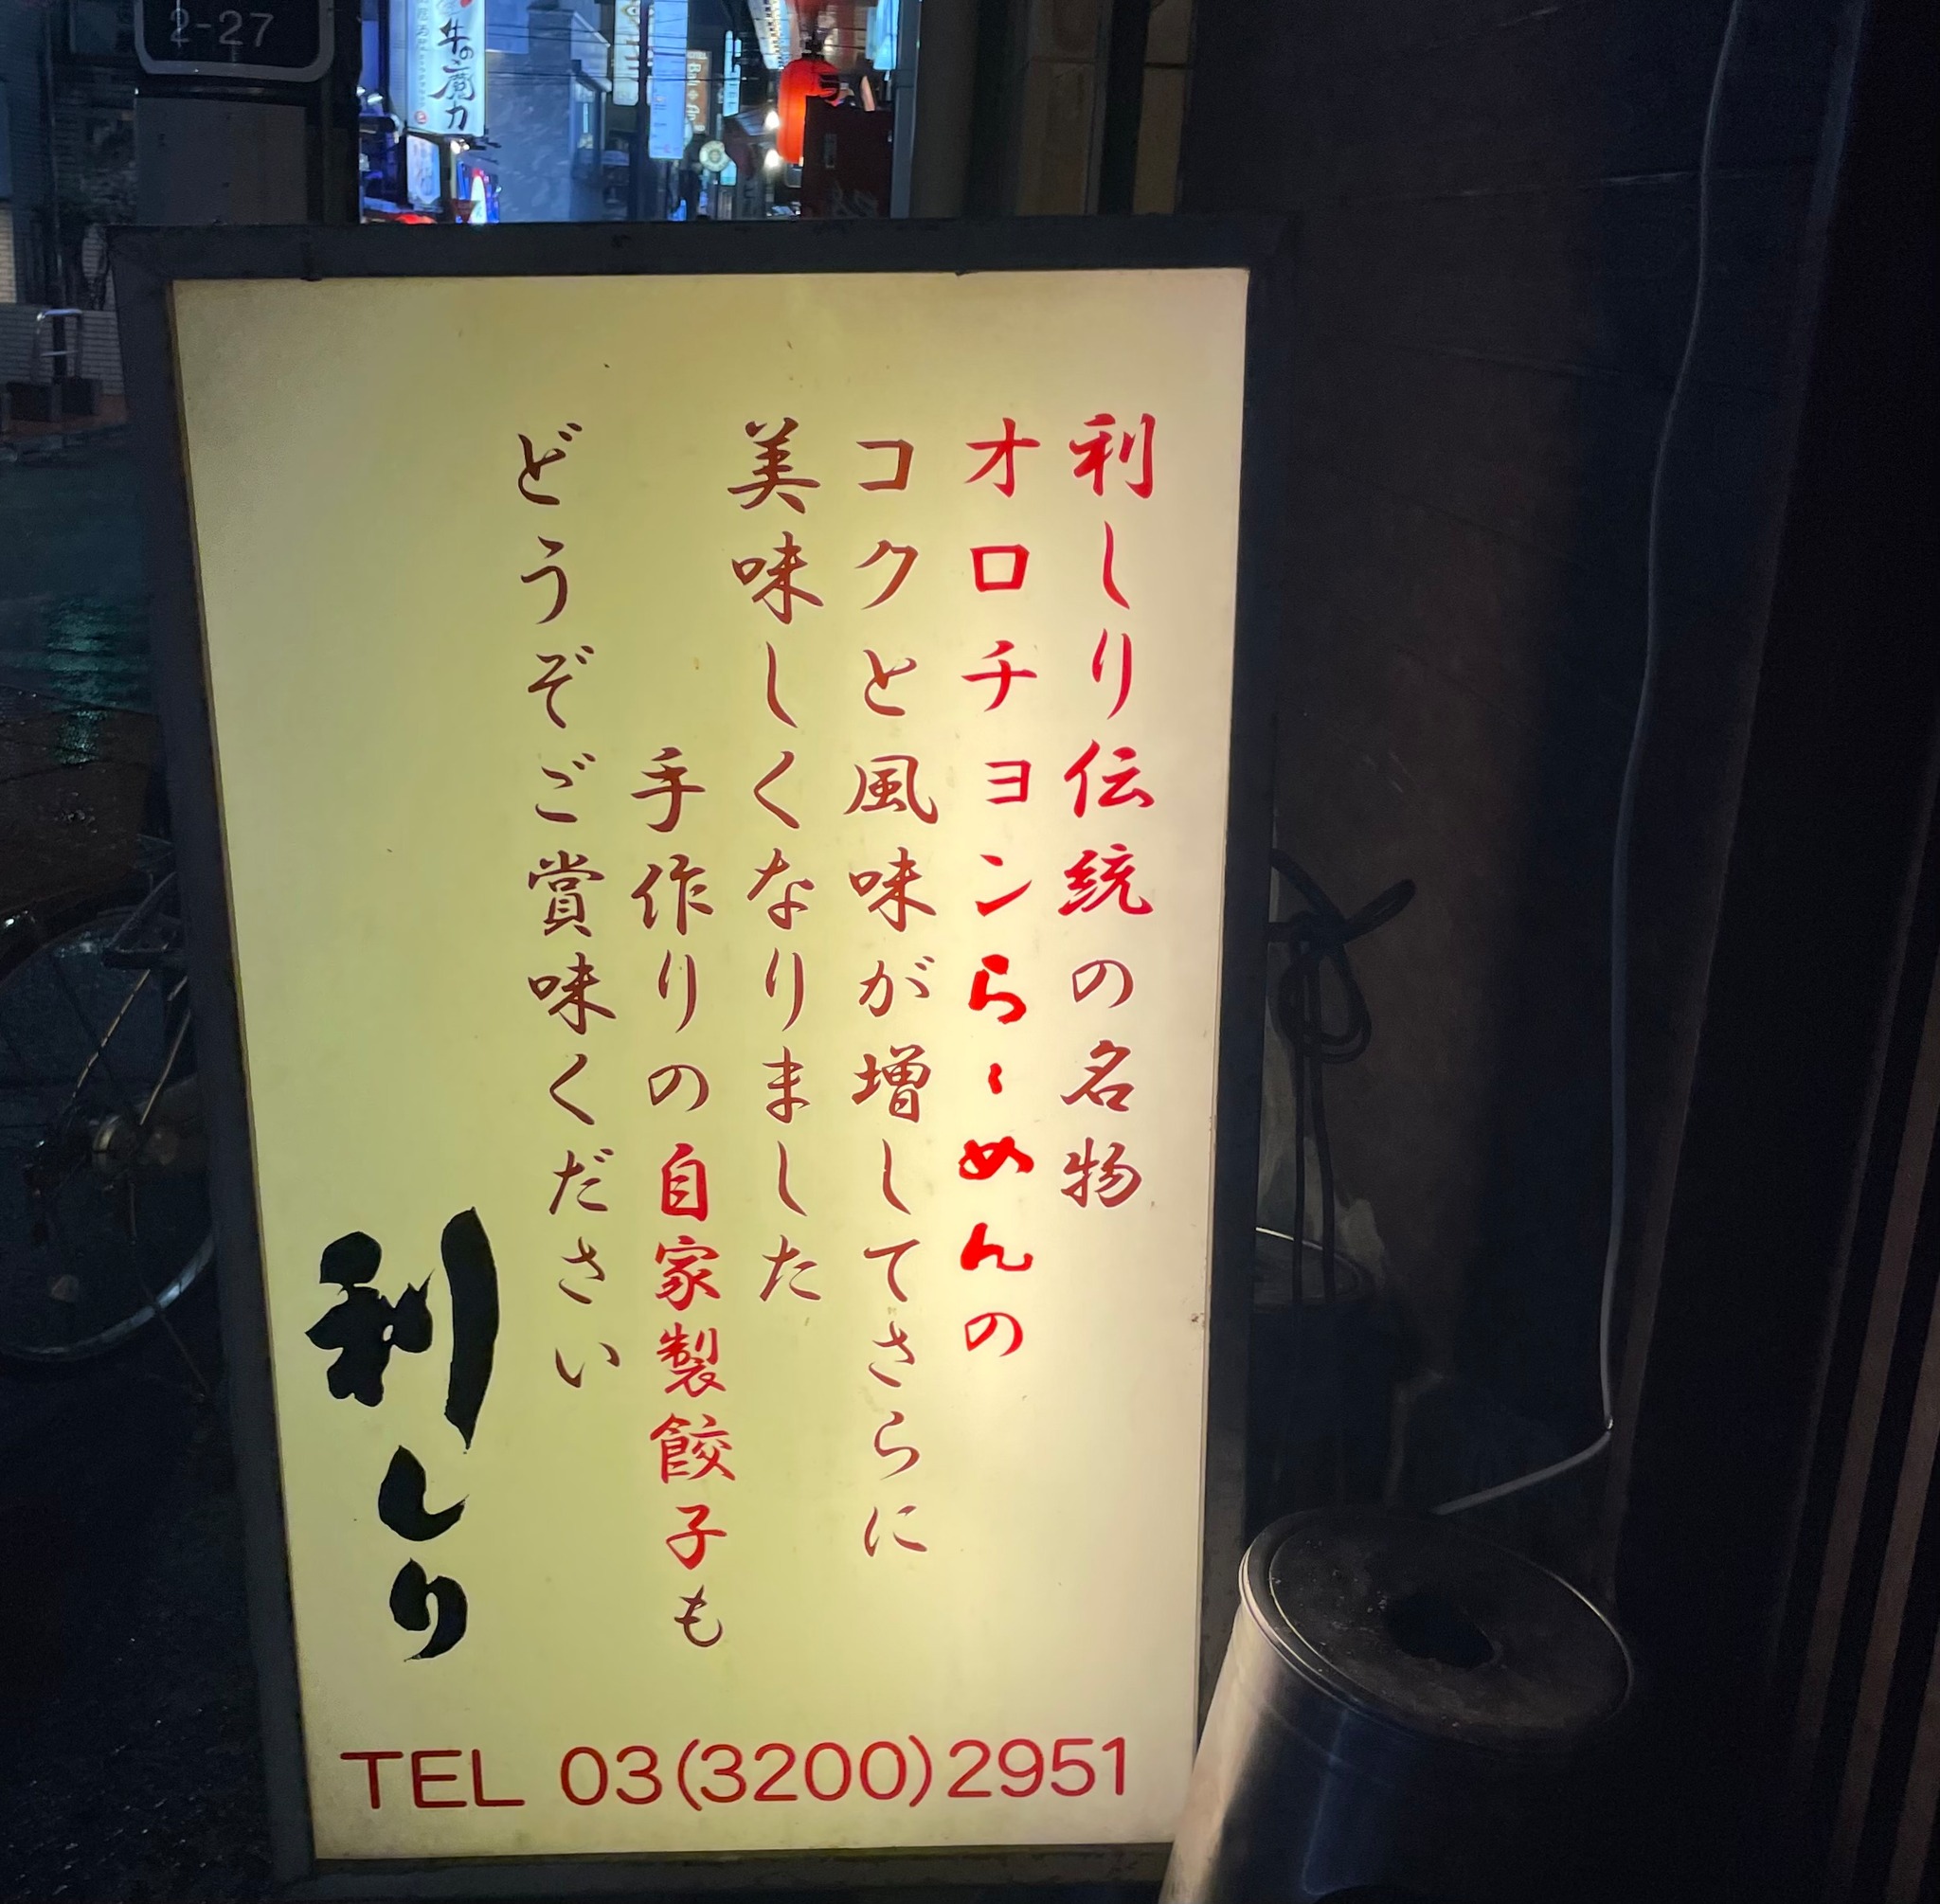 2-27
牛の蔵力
利しり伝統の名物
オロチョンらーめんの
コクと風味が増してさらに
美味しくなりました
手作りの自家製餃子も
どうぞご賞味ください
利しり
TEL 03(3200)2951